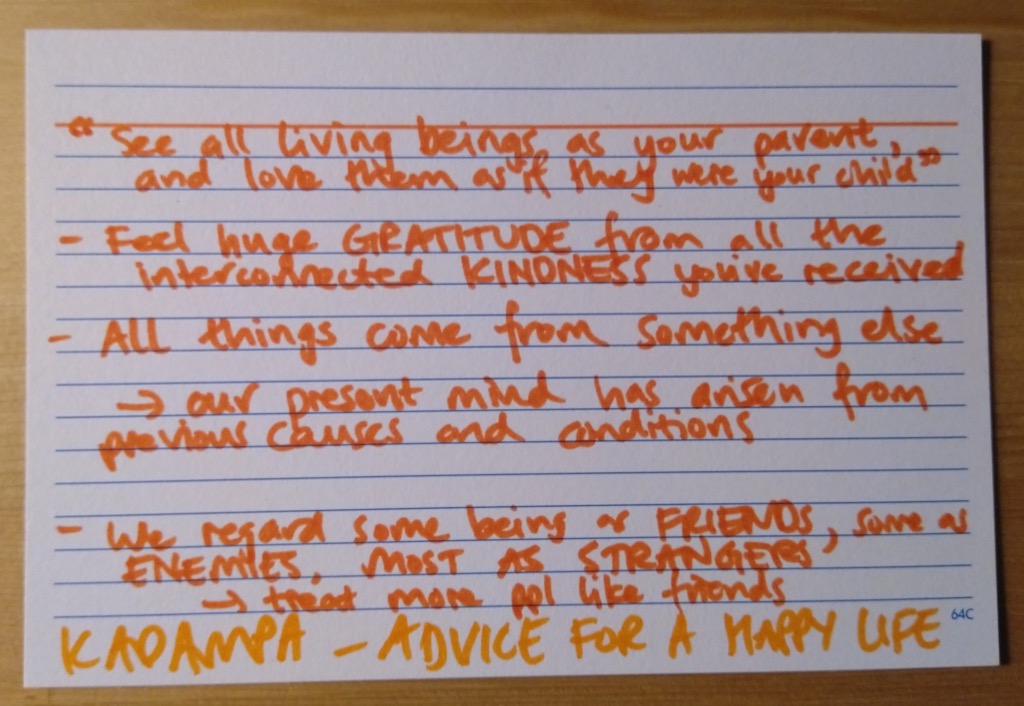 " See all living beings as your parent,
and love them as if they were your child"
- Feel huge GRATITUDE from all the
interconnected KINDNESS you've received
- ALL things come from something else
→ our present mind has arisen from
previous causes and conditions
- We regard some being as FRIENDS, some as
ENEMIES, MOST AS STRANGERS
→ treat more ppl like friends
64C
KADAMPA - ADVICE FOR A HAPPY LIFE